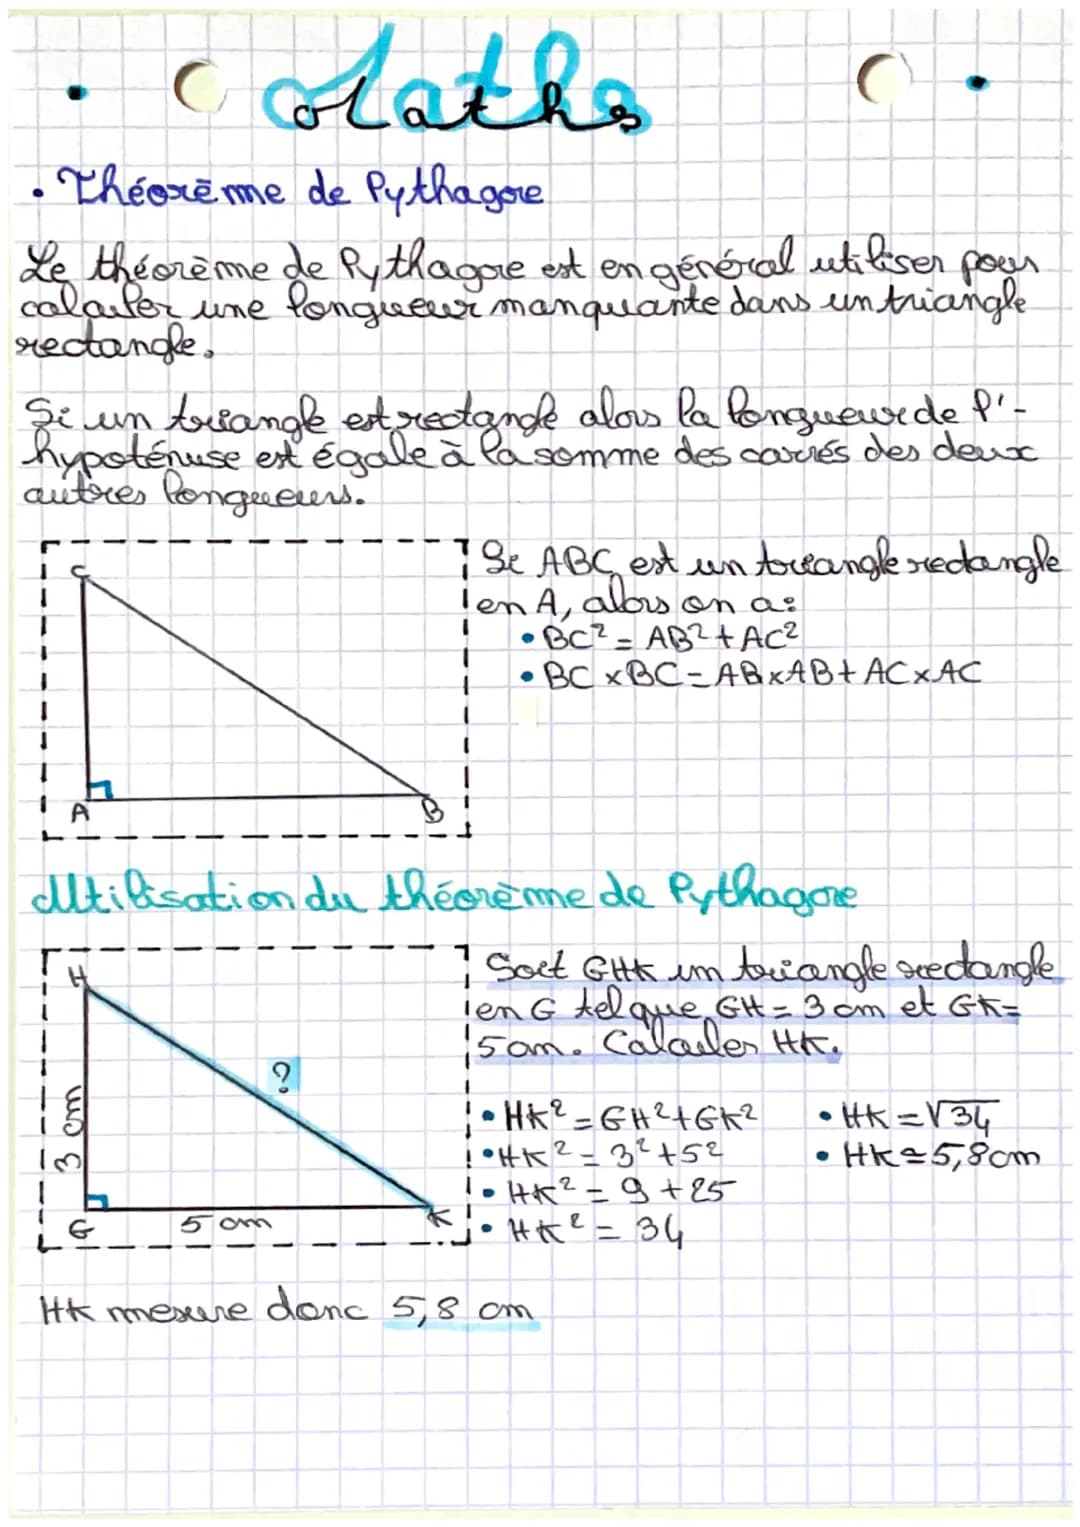 Maths
• Théorème de Pythagore
Le théorème de Pythagore est en général utiliser pour
calculer une longueur manquante dans un triangle
rectangle.
Si un triangle est rectangle alors la longueur de l'-
hypoténuse est égale à la somme des carrés des deux
autres longueurs.
C
A
B
Si ABC est un triangle rectangle
en A, alors on a:
• BC² = AB² + AC²
• BC × BC = AB × AB + AC × AC
Utilisation du théorème de Pythagore
H
?
3 cm
G
5 cm
K
Soit GHK un triangle rectangle
en G tel que GH = 3 cm et GK=
5 cm. Calculer HK.
• HK² = GH² + GK²
• HK² = 3² + 5²
• HK² = 9 + 25
• HK² = 34
• HK = √34
• HK ≃ 5,8 cm
HK mesure donc 5,8 cm